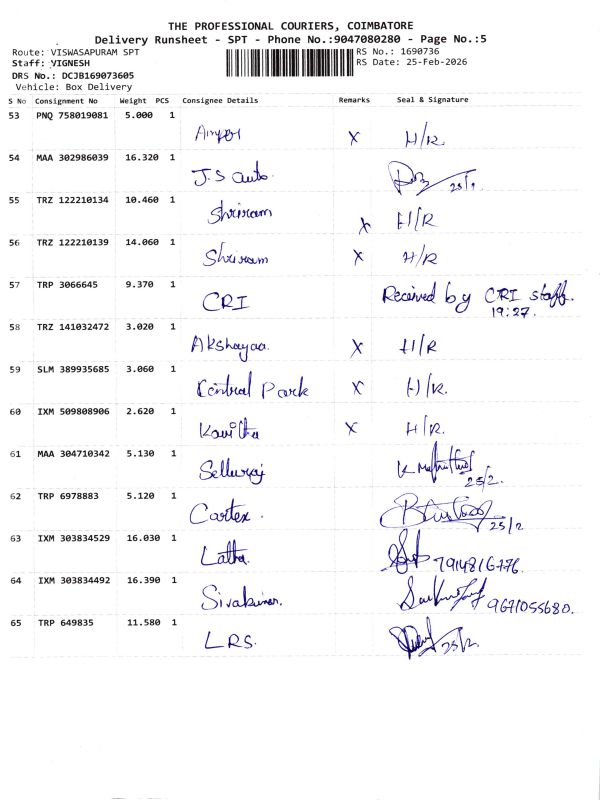 THE PROFESSIONAL COURIERS, COIMBATORE
Delivery Runsheet - SPT - Phone No.:9047080280 - Page No.:5
Route: VISWASAPURAM SPT RS No.: 1690736
Staff: VIGNESH RS Date: 25-Feb-2026
DRS No.: DCJB169073605
Vehicle: Box Delivery
S No Consignment No Weight PCS Consignee Details Remarks Seal & Signature
53 PNQ 758019081 5.000 1 X H/R
54 MAA 302986039 16.320 1 J.S auto.
55 TRZ 122210134 10.460 1 Shriram X H/R
56 TRZ 122210139 14.060 1 Shriram X H/R
57 TRP 3066645 9.370 1 CRI Received by CRI staff. 19:27.
58 TRZ 141032472 3.020 1 Akshayaa. X H/R
59 SLM 389935685 3.060 1 Central Park X H/R.
60 IXM 509808906 2.620 1 Kavitha X H/R.
61 MAA 304710342 5.130 1 Selluraj 25/2.
62 TRP 6978883 5.120 1 Cortex. 25/2
63 IXM 303834529 16.030 1 Latha. 7914816776.
64 IXM 303834492 16.390 1 Sivakumar. 9671055680.
65 TRP 649835 11.580 1 LRS. 25/2.